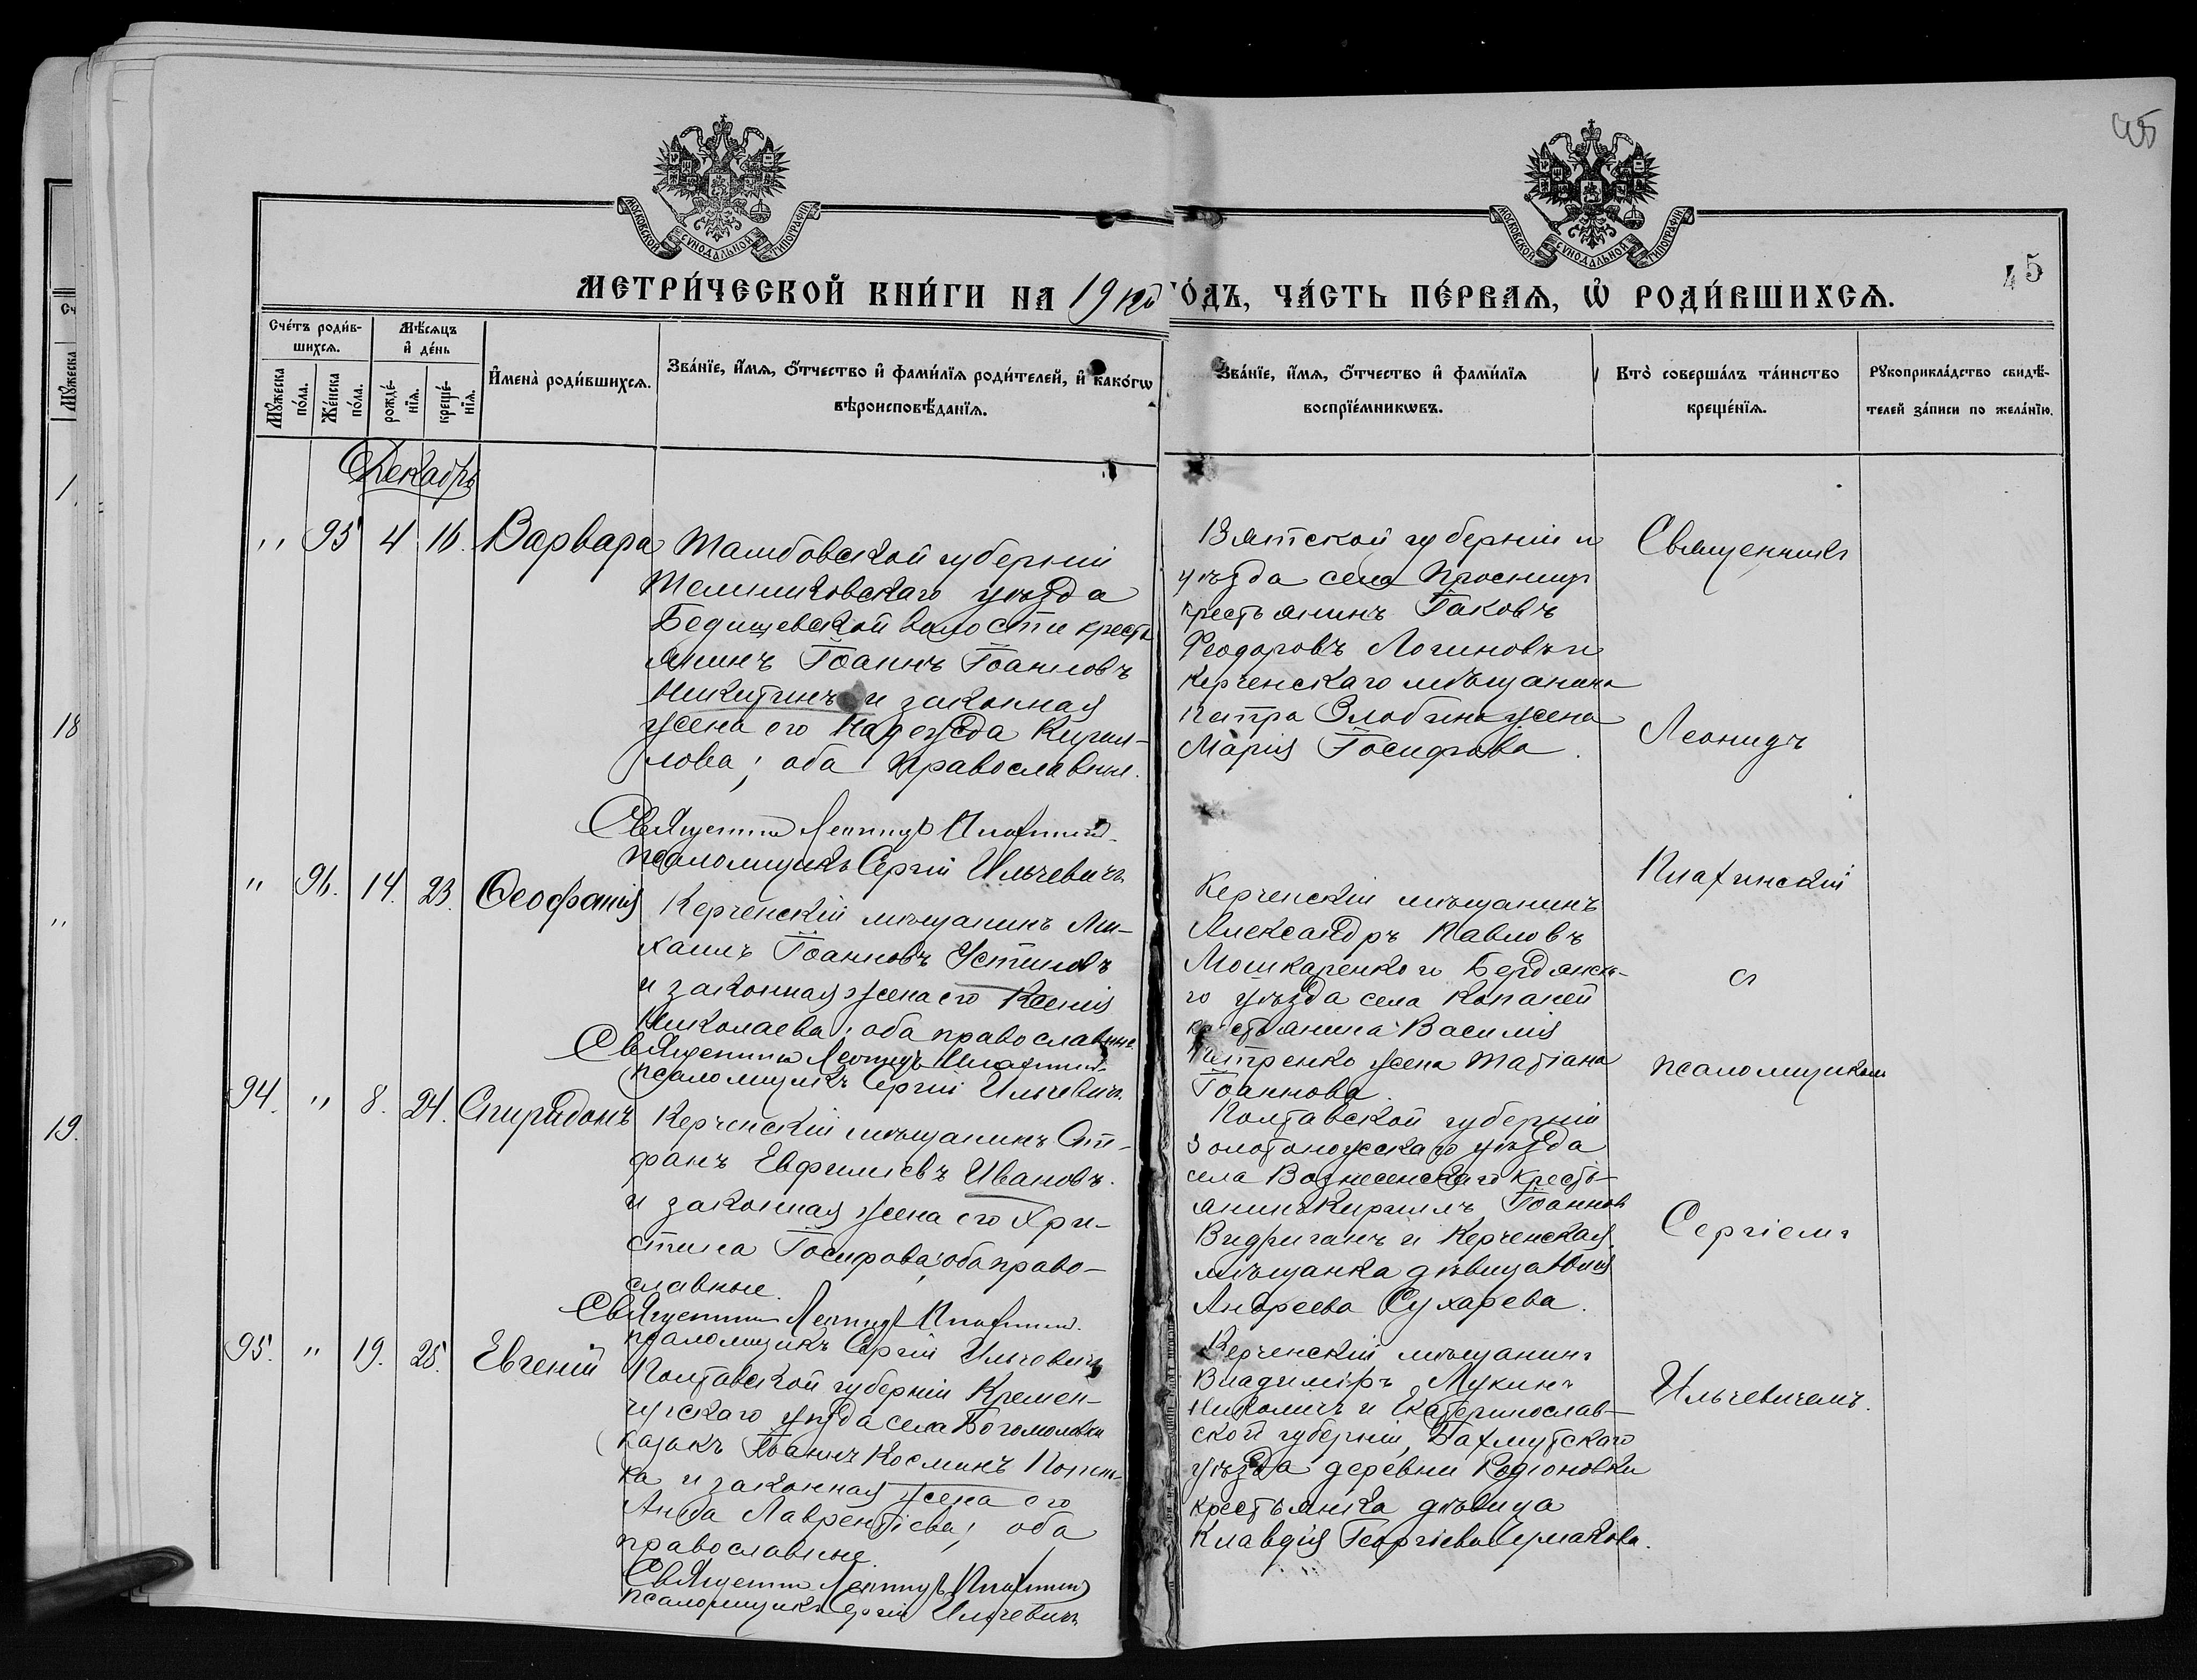 45
МОСКОВСКОЙ СѴНОДАЛЬНОЙ ТИПОГРАФІИ
МОСКОВСКОЙ СѴНОДАЛЬНОЙ ТИПОГРАФІИ
45
МЕТРИ́ЧЕСКОЙ КНИ́ГИ НА 19
ГО́ДЪ, ЧА́СТЬ ПЕ́РВАЯ, Ѡ҆ РОДИ́ВШИХСЯ.
Сче́тъ роди́в-
шихся.
Мѣ́сяцъ
и҆ де́нь
Мꙋ́жеска
по́ла.
Же́нска
по́ла.
рожде́-
нїя.
креще́-
нїя.
И҆мена̀ роди́вшихся.
Зва́нїе, и҆́мя, ѻ҆́тчество и҆ фами́лїя роди́телей, и҆ како́гѡ
вѣроисповѣ́данїя.
Зва́нїе, и҆́мя, ѻ҆́тчество и҆ фами́лїя
воспрїе́мникѡвъ.
Кто̀ соверша́лъ та́инство
креще́нїя.
Рꙋкоприкла́дство свидѣ́-
телей за́писи по жела́нїю.
Декабрь
" 95 4 16. Варвара
Тамбовской губерніи
Темниковскаго уѣзда
Бедищевской волости кресть
янинъ Іоаннъ Іоанновъ
Никитинъ и законная
жена его Надежда Кирил-
лова; оба православные.
Священникъ Леонидъ Плахинскій.
псаломщикъ Сергій Ильчевичъ
Вятской губерніи и
уѣзда села Просницы
крестьянинъ Іаковъ
Феодоровъ Логиновъ и
керченскаго мѣщанина
Петра Злобина жена
Марія Іосифова.
Священникъ
Леонидъ
Плахинскій
съ
псаломщикомъ
Сергіемъ
Ильчевичемъ.
" 96. 14. 23. Феофанія
Керченскій мѣщанинъ Ми-
хаилъ Іоанновъ Устиновъ
и законная жена его Ксенія
Николаева; оба православные.
Священникъ Леонидъ Плахинскій.
псаломщикъ Сергій Ильчевичъ
Керченскій мѣщанинъ
Александръ Павловъ
Мошкаренко и Бердянска-
го уѣзда села Копаней
крестьянина Василія
Петренко жена Татіана
Іоаннова.
94. " 8. 24. Спиридонъ
Керченскій мѣщанинъ Сте-
фанъ Евфиміевъ Ивановъ
и законная жена его Хри-
стина Іосифова; оба право-
славные.
Священникъ Леонидъ Плахинскій.
псаломщикъ Сергій Ильчевичъ
Полтавской губерніи
Золотоножскаго уѣзда
села Вознесенскаго кресть-
янинъ Кириллъ Іоанновъ
и Керченская
мѣщанка дѣвица Юлія
Андреева Сухарева.
95. " 19. 25. Евгеній
Полтавской губерніи Кремен-
чугскаго уѣзда села Богомоловки
казакъ Іоаннъ Косминъ
ка и законная жена его
Анна Лаврентіева; оба
православные.
Священникъ Леонидъ Плахинскій
псаломщикъ Сергій Ильчевичъ
Керченскій мѣщанинъ
Владиміръ Лукинъ
и Екатеринослав-
ской губерніи, Бахмутскаго
уѣзда деревни Родіоновки
крестьянка дѣвица
Клавдія Георгіева Чумакова.
18
"
19.